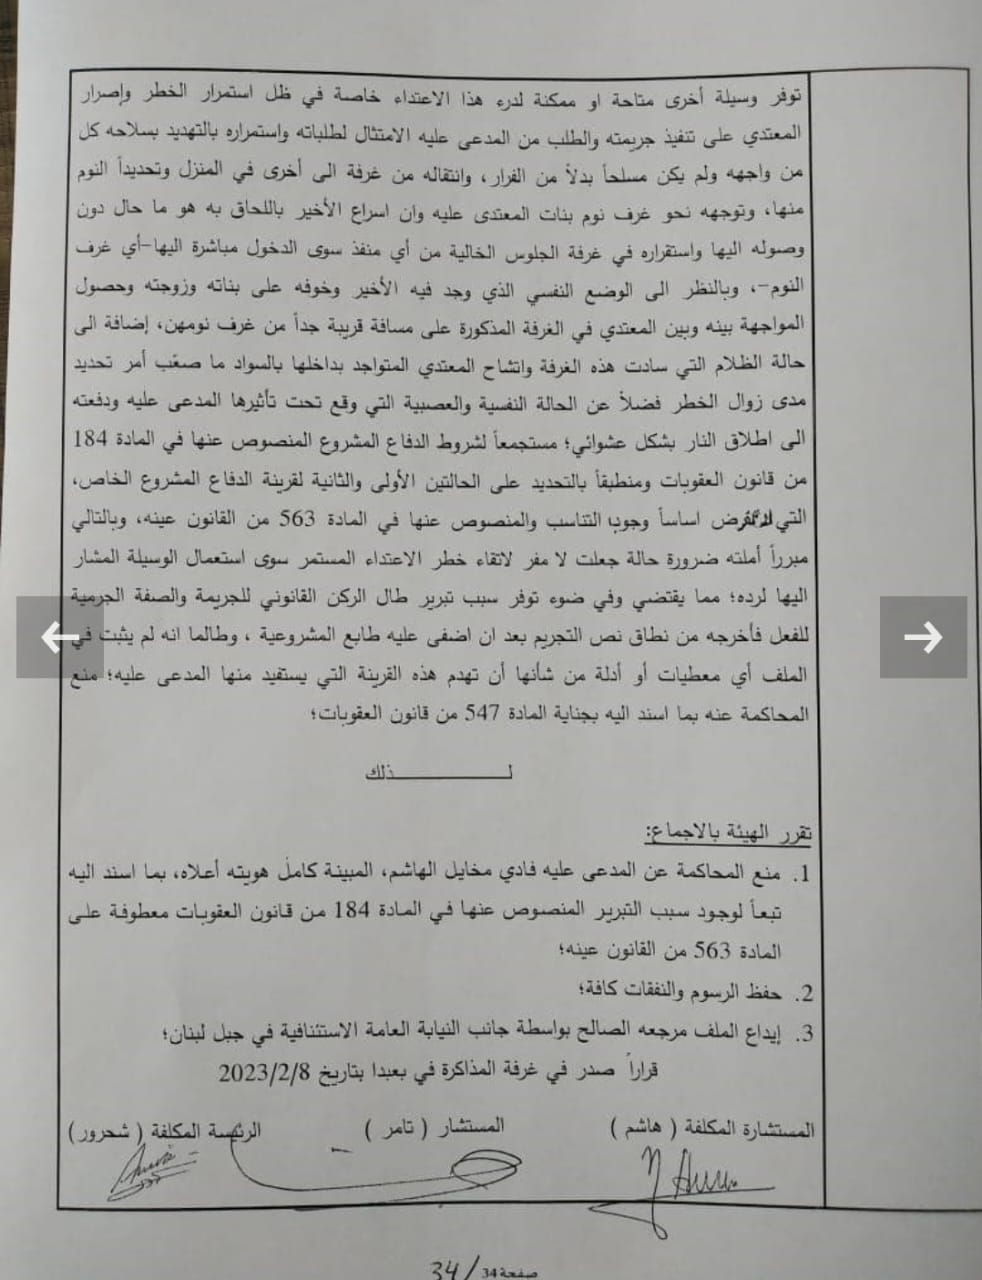 توفر وسيلة أخرى متاحة او ممكنة لدرء هذا الاعتداء خاصة في ظل استمرار الخطر وإصرار
المعتدي على تنفيذ جريمته والطلب من المدعى عليه الامتثال لطلباته واستمراره بالتهديد بسلاحه كل
من واجهه ولم يكن مسلحاً بدلاً من الفرار، وانتقاله من غرفة الى أخرى في المنزل وتحديداً النوم
منها، وتوجهه نحو غرف نوم بنات المعتدى عليه وان اسراع الأخير باللحاق به هو ما حال دون
وصوله اليها واستقراره في غرفة الجلوس الخالية من أي منفذ سوى الدخول مباشرة اليها-أي غرف
النوم-، وبالنظر الى الوضع النفسي الذي وجد فيه الأخير وخوفه على بناته وزوجته وحصول
المواجهة بينه وبين المعتدي في الغرفة المذكورة على مسافة قريبة جداً من غرف نومهن، إضافة الى
حالة الظلام التي سادت هذه الغرفة واتشاح المعتدي المتواجد بداخلها بالسواد ما صعّب أمر تحديد
مدى زوال الخطر فضلاً عن الحالة النفسية والعصبية التي وقع تحت تأثيرها المدعى عليه ودفعته
الى اطلاق النار بشكل عشوائي؛ مستجمعاً لشروط الدفاع المشروع المنصوص عنها في المادة 184
من قانون العقوبات ومنطبقاً بالتحديد على الحالتين الأولى والثانية لقرينة الدفاع المشروع الخاص،
التي اساساً وجوب التناسب والمنصوص عنها في المادة 563 من القانون عينه، وبالتالي
مبرراً أملته ضرورة حالة جعلت لا مفر لاتقاء خطر الاعتداء المستمر سوى استعمال الوسيلة المشار
اليها لرده؛ مما يقتضي وفي ضوء توفر سبب تبرير طال الركن القانوني للجريمة والصفة الجرمية
للفعل فأخرجه من نطاق نص التجريم بعد ان اضفى عليه طابع المشروعية ، وطالما انه لم يثبت في
الملف أي معطيات أو أدلة من شأنها أن تهدم هذه القرينة التي يستفيد منها المدعى عليه؛ منع
المحاكمة عنه بما اسند اليه بجناية المادة 547 من قانون العقوبات؛
لـــــــــــــذلك
تقرر الهيئة بالاجماع:
1. منع المحاكمة عن المدعى عليه فادي مخايل الهاشم، المبينة كامل هويته أعلاه، بما اسند اليه
تبعاً لوجود سبب التبرير المنصوص عنها في المادة 184 من قانون العقوبات معطوفة على
المادة 563 من القانون عينه؛
2. حفظ الرسوم والنفقات كافة؛
3. إيداع الملف مرجعه الصالح بواسطة جانب النيابة العامة الاستئنافية في جبل لبنان؛
قراراً صدر في غرفة المذاكرة في بعبدا بتاريخ 2023/2/8
المستشارة المكلفة ( هاشم ) المستشار ( تامر ) الرئيسة المكلفة ( شحرور )
صفحة 34 / 34